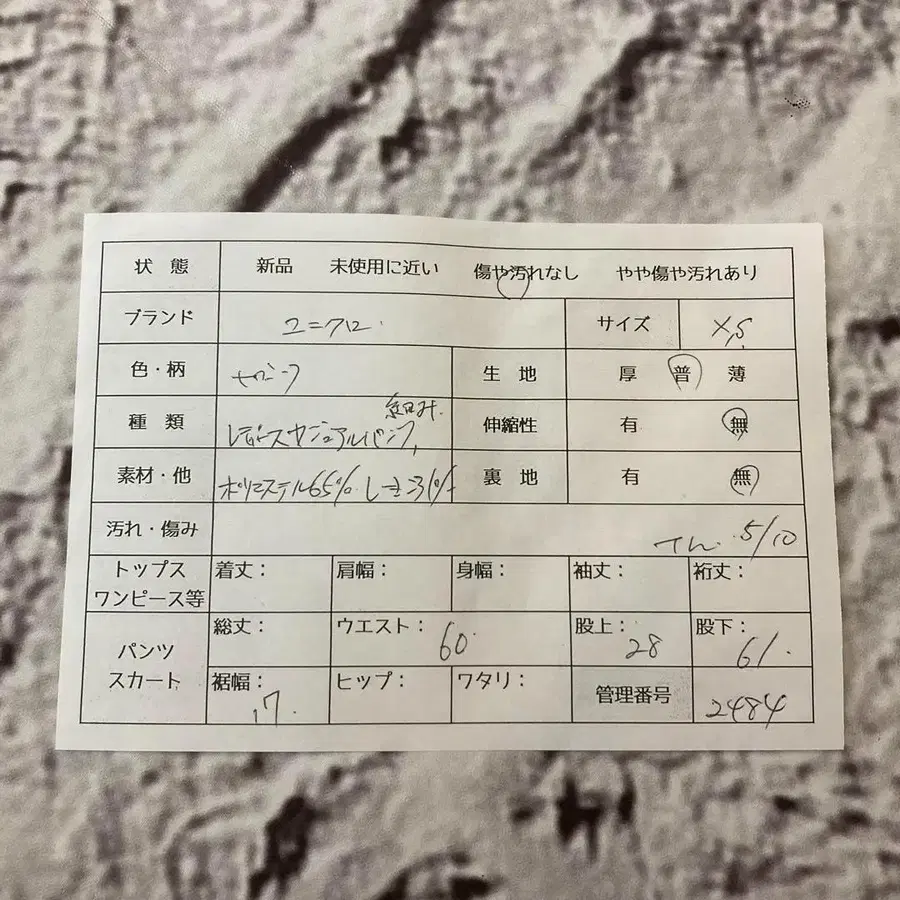 状 態 新品 未使用に近い 傷や汚れなし やや傷や汚れあり
ブランド ユニクロ サイズ XS
色・柄 生 地 厚 普 薄
種 類 レディースカジュアルパンツ 伸縮性 有 無
素材・他 ポリエステル65% レーヨン31% 裏 地 有 無
汚れ・傷み 5/10
トップス ワンピース等 着丈: 肩幅: 身幅: 袖丈: 裄丈:
パンツ スカート 総丈: ウエスト: 60 股上: 28 股下: 61
裾幅: 17 ヒップ: ワタリ: 管理番号 2484